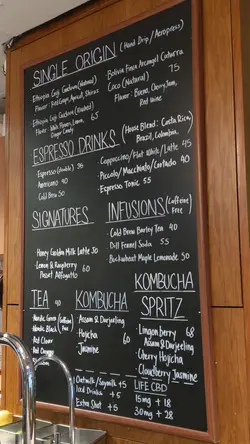 SINGLE ORIGIN (Hand Drip / Aeropress)
Ethiopia Guji Gudova (Natural)
Flavor: Red Grape, Apricot,
Ethiopia Guji Gudova (Washed)
Flavor: Lemon,
Ginger Candy 65
Bolivia Finca Arcangel Caturra
Coco (Natural) 75
Flavor: Berry, Cherry Jam,
Red Wine
ESPRESSO DRINKS (House Blend: Costa Rica,
Brazil, Colombia)
Espresso (double) 38
Americano 40
Cold Brew 50
Cappuccino/Flat White/Latte 45
Piccolo/Macchiato/Cortado 40
Espresso Tonic 55
SIGNATURES
Honey Golden Milk Latte 50
Lemon & Raspberry
Basil Affogato 60
INFUSIONS (Caffeine Free)
Cold Brew Barley Tea 40
Dill Fennel Soda 55
Buckwheat Maple Lemonade 50
TEA 40
Nordic Green
Nordic Black
(Caffeine Free)
Red Clover
KOMBUCHA
Assam & Darjeeling
Hojicha 60
Jasmine
KOMBUCHA
SPRITZ
Lingonberry 68
Assam & Darjeeling
Cherry Hojicha
Cloudberry Jasmine
Oatmilk/Soymilk +5
Iced Drinks +5
Extra Shot +5
LIFE CBD
15mg +18
30mg +28